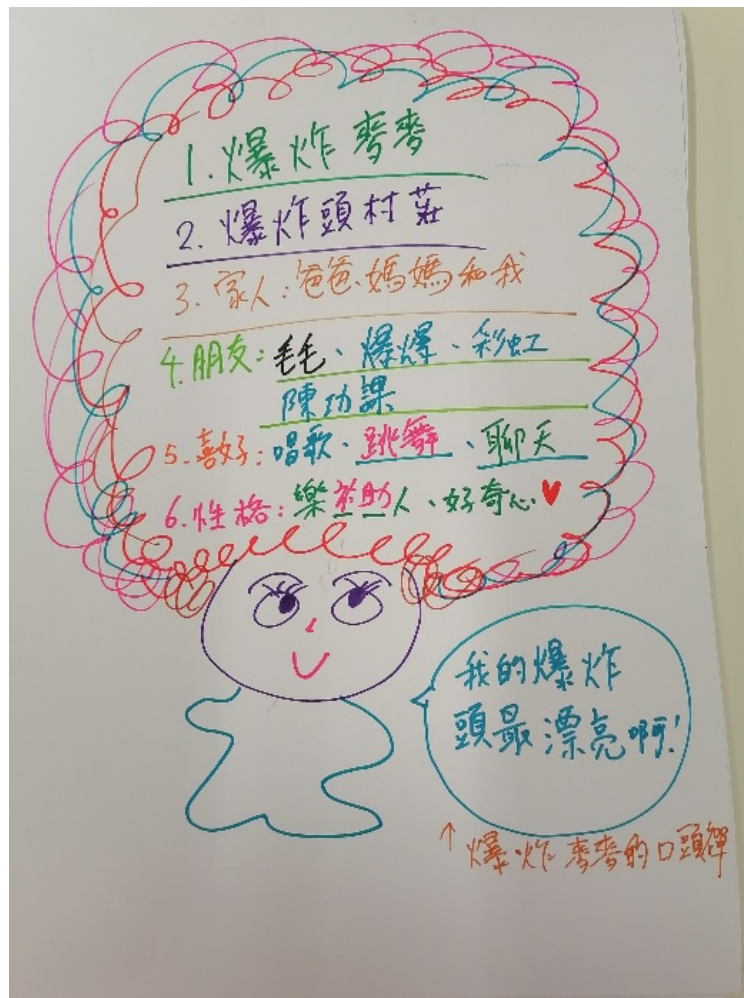 1. 爆炸麥麥
2. 爆炸頭村莊
3. 家人：爸爸、媽媽和我
4. 朋友：毛毛、爆爆、彩虹
陳功課
5. 喜好：唱歌、跳舞、聊天
6. 性格：樂於助人、好奇心
我的爆炸
頭最漂亮啊！
↑爆炸麥麥的口頭禪